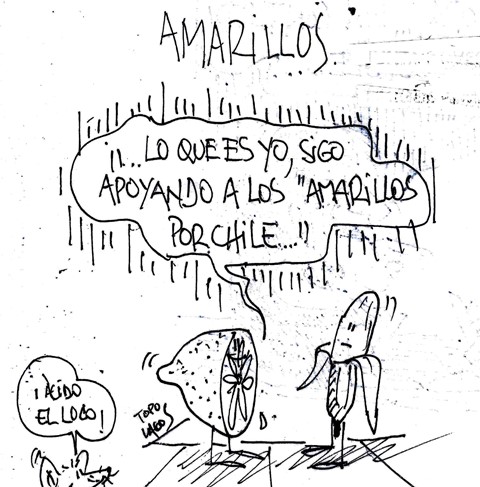 AMARILLOS
¡¡...LO QUE ES YO, SIGO
APOYANDO A LOS "AMARILLOS
POR CHILE..."!!
¡ACIDO
EL LOCO!
TOPO
LAGOS